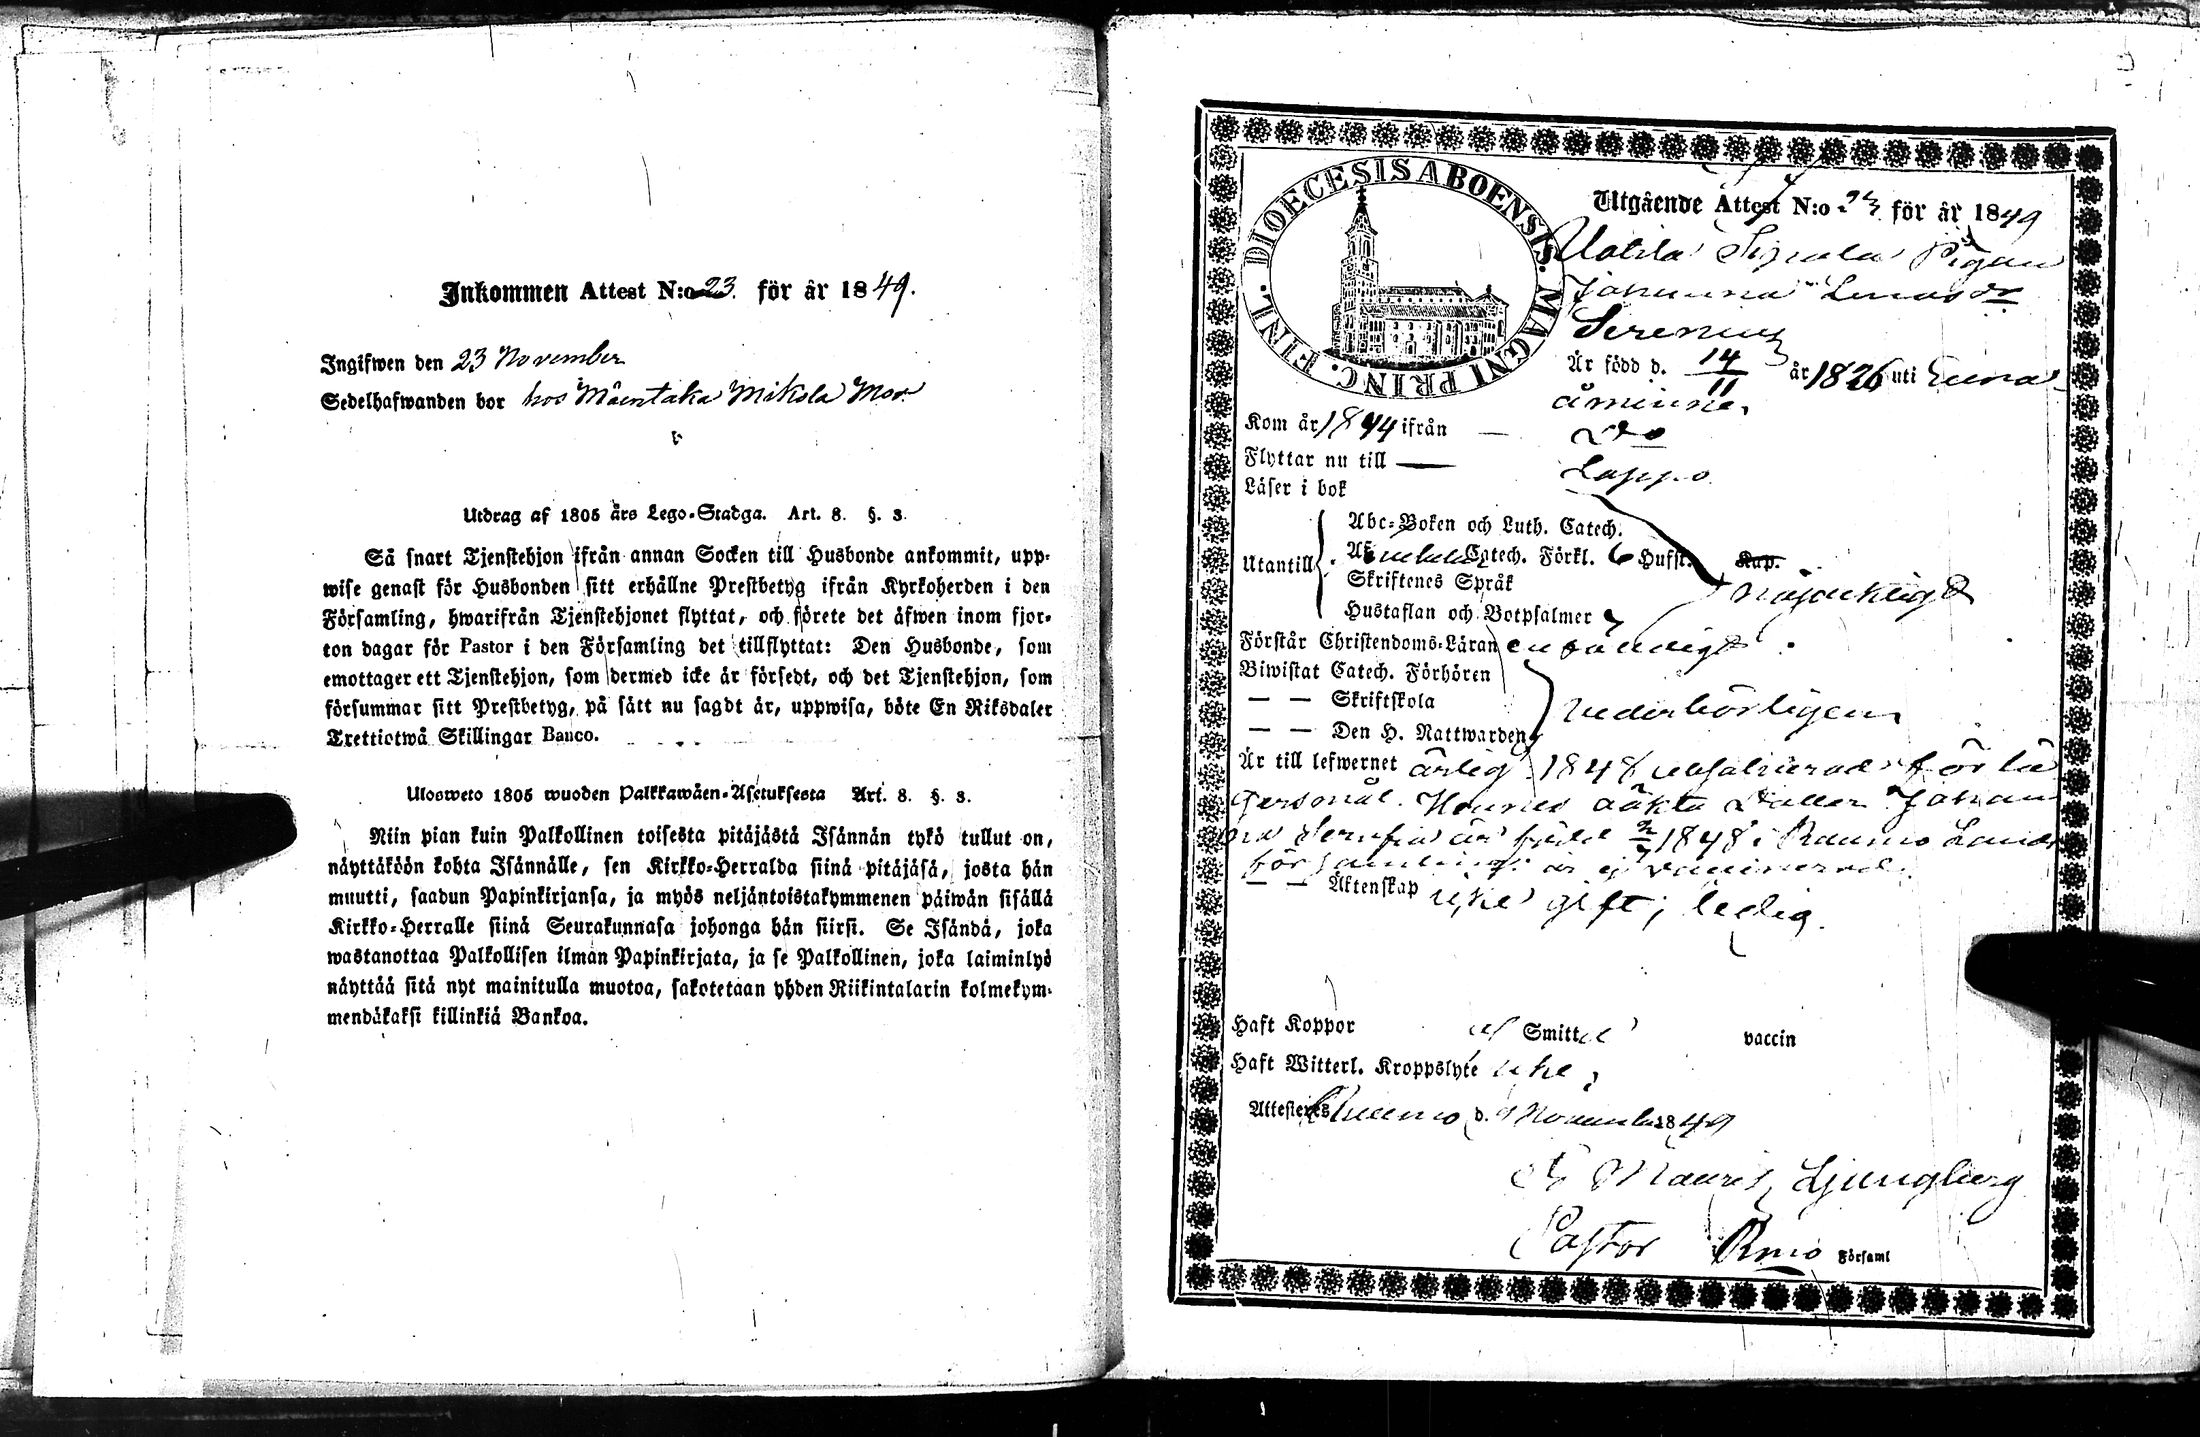 Inkommen Attest N:o 23. för år 1849.
Ingifwen den 23 November
Sedelhafwanden bor hos Mäentaka Mikola Mor.
Utdrag af 1805 års Lego-Stadga. Art. 8. §. 3.
Så snart Tjenstehjon ifrån annan Socken till Husbonde ankommit, upp-
wise genast för Husbonden sitt erhållne Prestbetyg ifrån Kyrkoherden i den
Församling, hwarifrån Tjenstehjonet flyttat, och förete det äfwen inom fjor-
ton dagar för Pastor i den Församling det tillflyttat: Den Husbonde, som
emottager ett Tjenstehjon, som dermed icke är försedt, och det Tjenstehjon, som
försummar sitt Prestbetyg, på sätt nu sagdt är, uppwisa, böte En Riksdaler
Trettiotwå Skillingar Banco.
Ulosweto 1805 wuoden Palkkawäen-Asetuksesta Art. 8. §. 3.
Niin pian kuin Palkollinen toisesta pitäjästä Isännän tykö tullut on,
näyttäköön kohta Isännälle, sen Kirkko-Herralda siinä pitäjäsä, josta hän
muutti, saadun Papinkirjansa, ja myös neljäntoistakymmenen päiwän sisällä
Kirkko-Herralle siinä Seurakunnasa johonga hän siirsi. Se Isändä, joka
wastanottaa Palkollisen ilman Papinkirjata, ja se Palkollinen, joka laiminlyö
näyttää sitä nyt mainitulla muotoa, sakotetaan yhden Riikintalarin kolmekym-
mendäkaksi killinkiä Bankoa.
DIOECESIS ABOENSIS. MAGNI PRINC. FINL.
Utgående Attest N:o för år 1849
Pigan
Johanna
Serenius
År född d. 14/11 år 1826 uti Eura
åminne.
Kom år 1844 ifrån — Do
Flyttar nu till — Lappo
Läser i bok
Abc-Boken och Luth. Catech.
Utantill Catech. Förkl. 6 Hufst. Kap.
Skriftenes Språk nöjaktigt
Hustaflan och Botpsalmer
Förstår Christendoms-Läran enfaldigt.
Biwistat Catech. Förhören
— — Skriftskola wederbörligen
— — Den H. Nattwarden
Är till lefwernet ärlig 1848 absolverad för
Hennes oäkta Dotter Johan
na Serafia är född 1848 i Raumo Lands
församling: är ej vaccinerad.
— — Äktenskap icke gift; ledig.
Haft Koppor Smitt vaccin
Haft Witterl. Kroppslyte icke;
Attesteras Raumo d. 9 November 1849
Mauritz Ljungberg
Pastor Rmo Församl